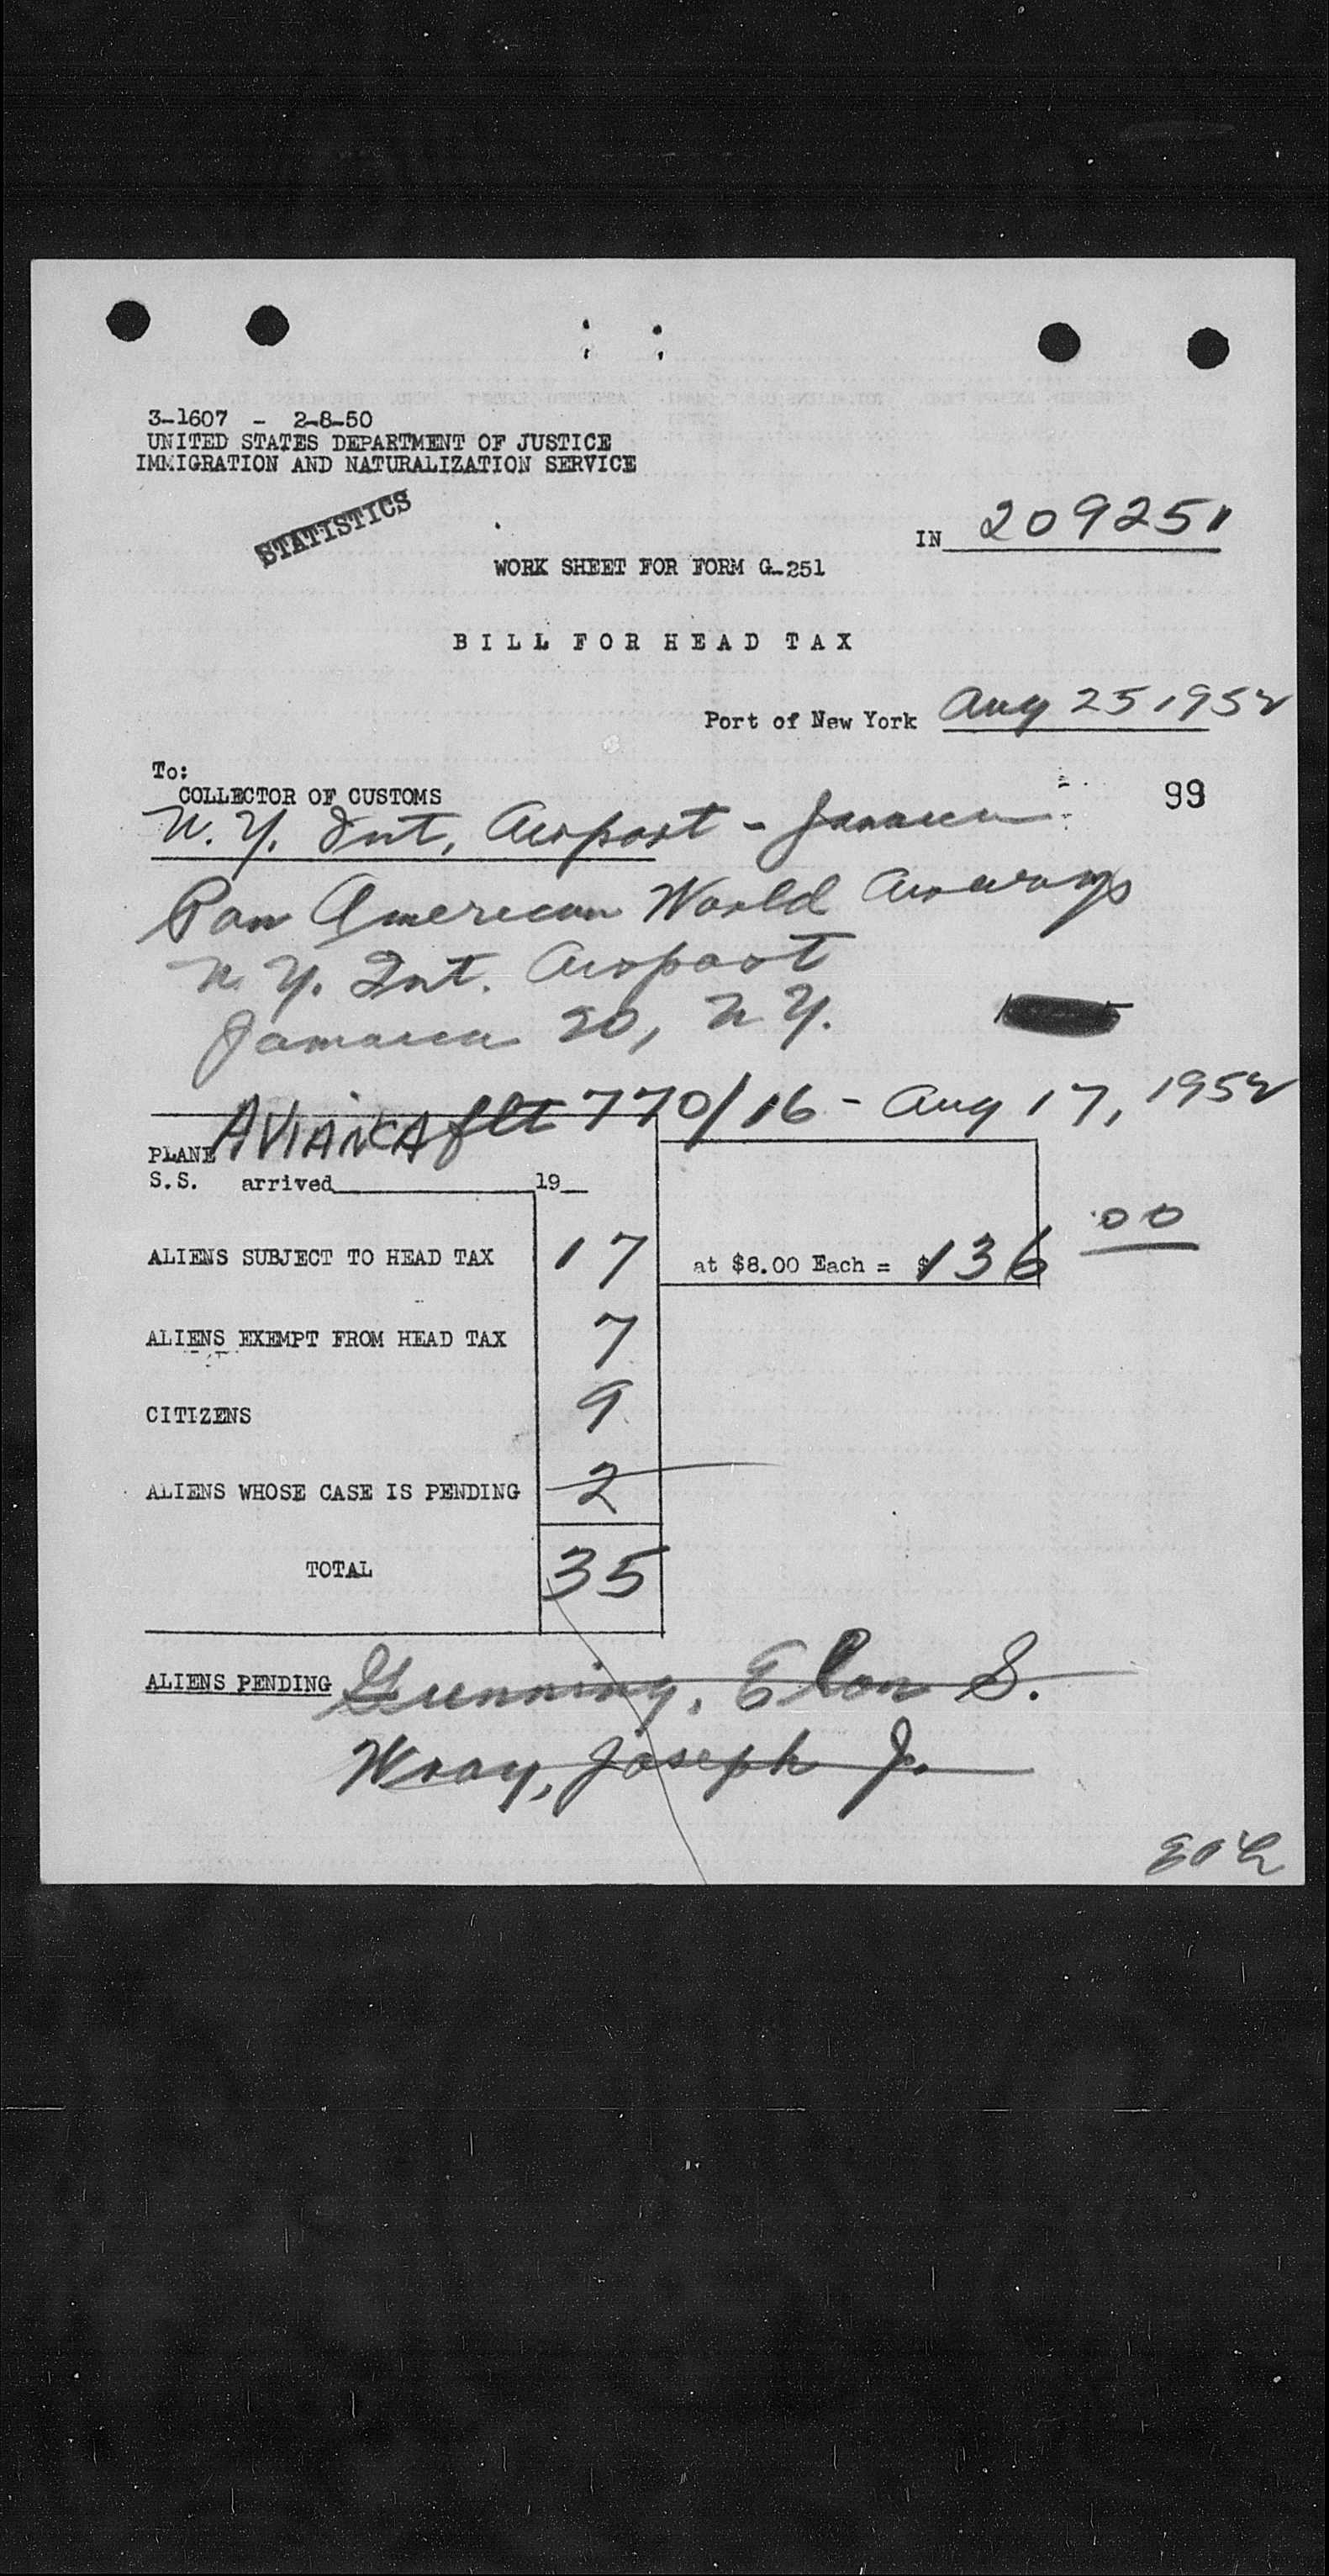 3-1607 - 2-8-50
UNITED STATES DEPARTMENT OF JUSTICE
IMMIGRATION AND NATURALIZATION SERVICE
STATISTICS
IN 209251
WORK SHEET FOR FORM G-251
BILL FOR HEAD TAX
Port of New York Aug 25, 1952
To:
COLLECTOR OF CUSTOMS
99
N. Y. Int. Airport - Jamaica
Pan American World Airways
N. Y. Int. Airport
Jamaica 20, N. Y.
AVIANCA flt 770/16 - Aug 17, 1952
PLANE
S.S. arrived 19
ALIENS SUBJECT TO HEAD TAX 17 at $8.00 Each = $136 00
ALIENS EXEMPT FROM HEAD TAX 7
CITIZENS 9
ALIENS WHOSE CASE IS PENDING 2
TOTAL 35
ALIENS PENDING Gunning, Elon S.
Wray, Joseph J.